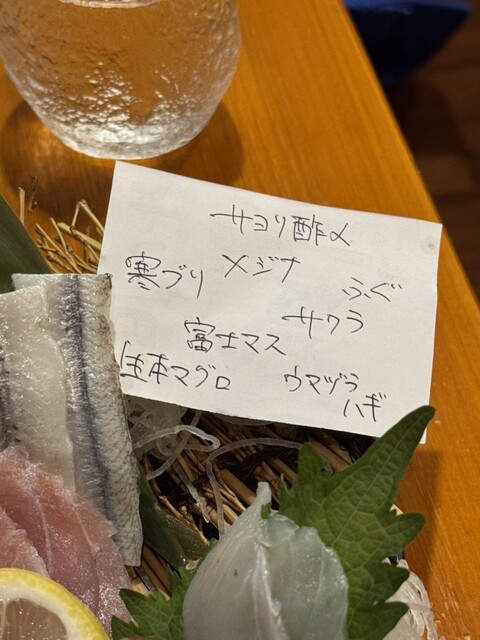 サヨリ酢〆
寒ブリ
メジナ
ふぐ
富士マス
サワラ
生本マグロ
ウマヅラ
ハギ